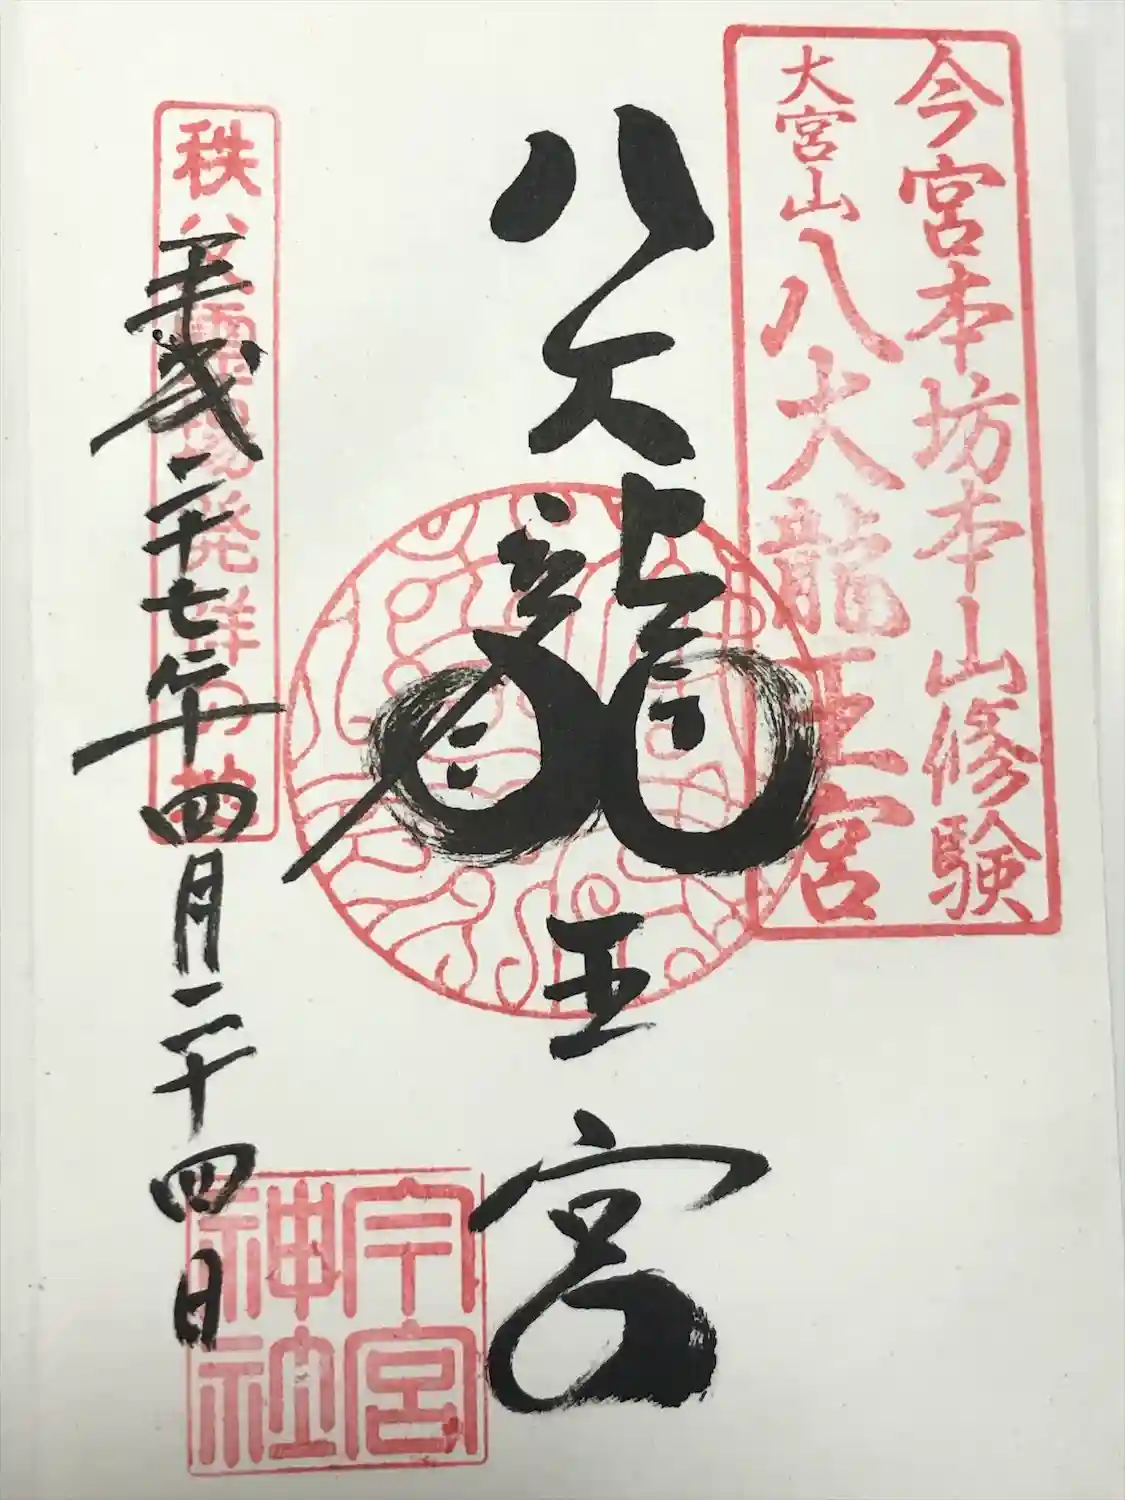 今宮本坊本山修験
大宮山八大龍王宮
八大龍王宮
秩父霊場発祥の地
平成二十七年四月二十四日
今宮神社